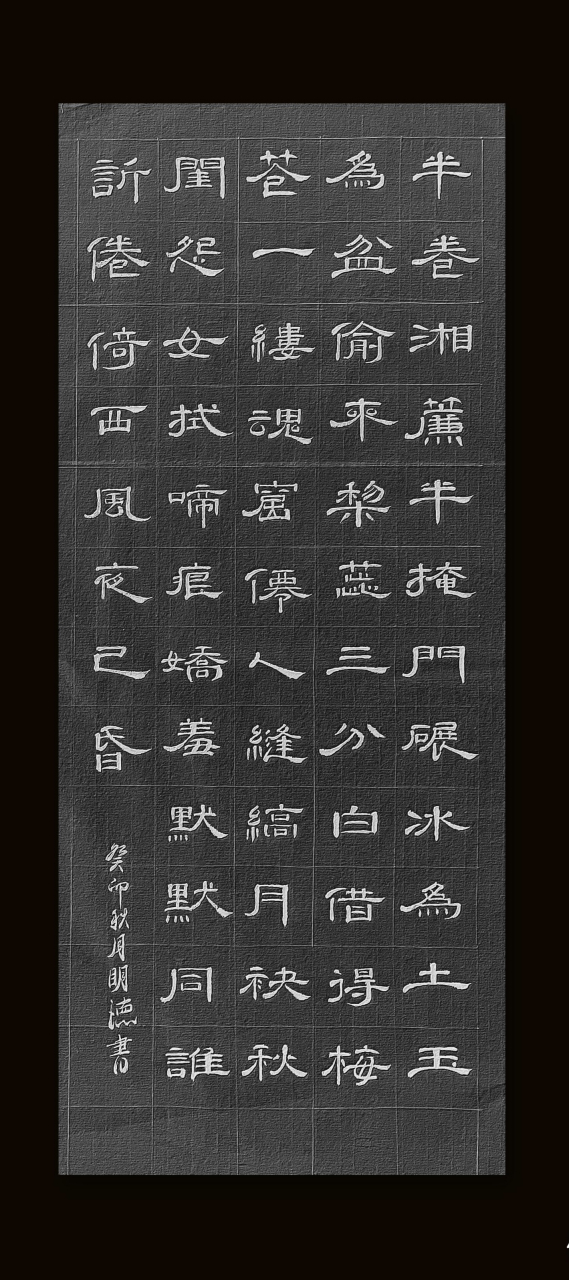 半卷湘簾半掩門碾冰為土玉
為盆偷來棃蕊三分白借得梅
苍一縷魂窟僊人縫縞月袂秋
閨怨女拭啼痕嬌羞默默同誰
訢倦倚西風夜已昏
癸卯秋月明德書